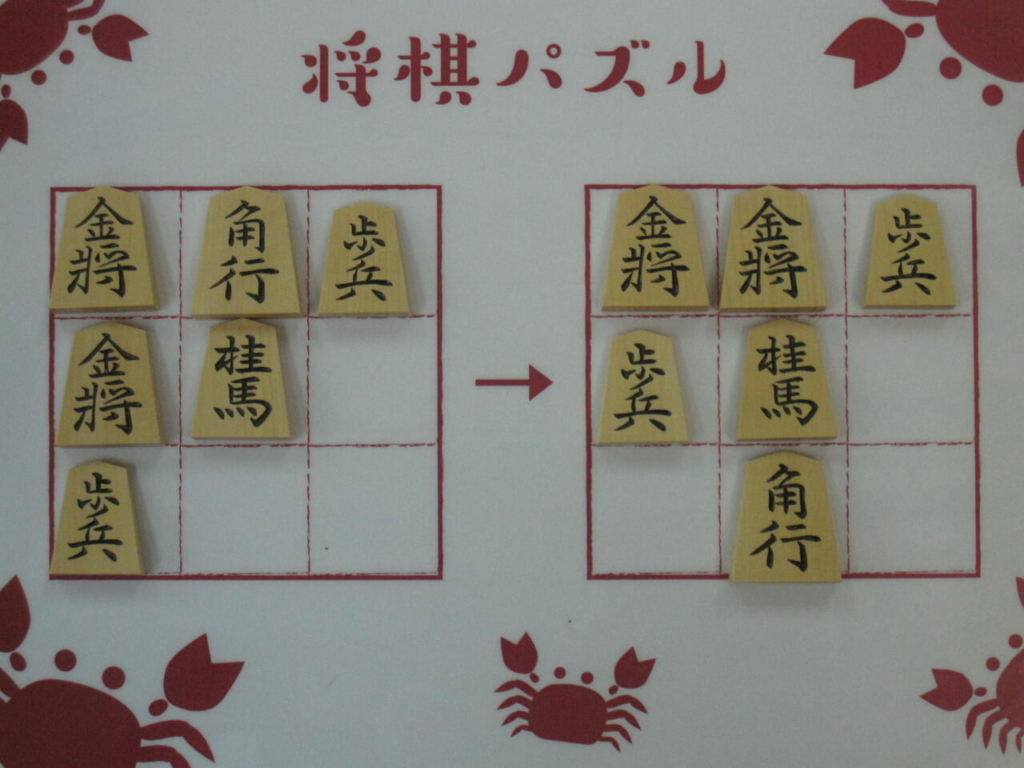 将棋パズル
金将 角行 歩兵 金将 金将 歩兵
金将 桂馬 歩兵 桂馬
歩兵 角行